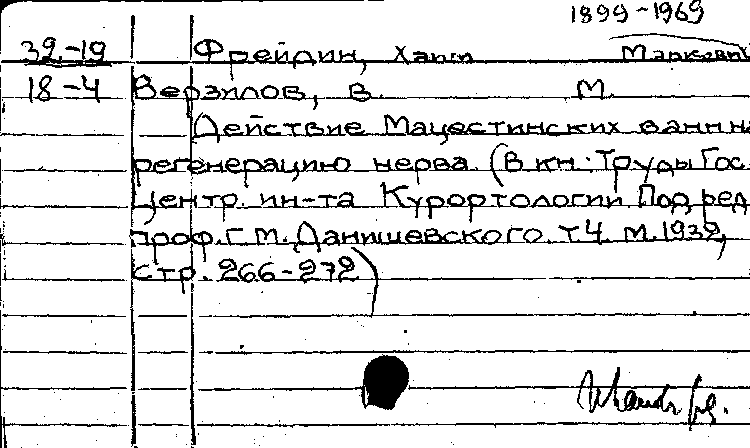 1899-1969
32-19 Фрейдин, Хаим Маркович
18-4 Верзилов, В. М.
Действие Мацестинских ванн на
регенерацию нерва (В кн. Труды Гос.
Центр. ин-та Курортологии Под ред
проф. Г.М. Данишевского. т 4. М. 1932,
стр. 266-272)